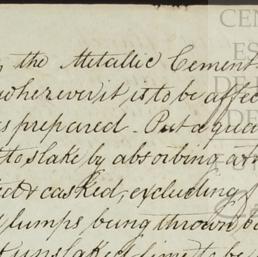 the Metallic Cement
wherever it is to be affec
s prepared. Put a qua
to slake by absorbing at
ct & casked, excluding
lumps being thrown b
unslaked lime to be
CEN
ES
DE
DE